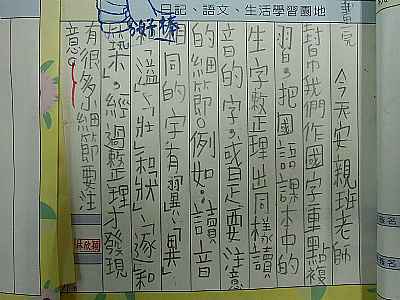 日記、語文、生活學習園地
好棒
今天安親班老師
幫我們作國字重點複
習，把國語課本中的
生字整理出同樣讀
音的字，或是要注意
的細節。例如：讀音
相同的字有「翼」、「異」、
「溢」、「壯」和「狀」、「逐和
築」，經過整理才發現
有很多小細節要注
意。